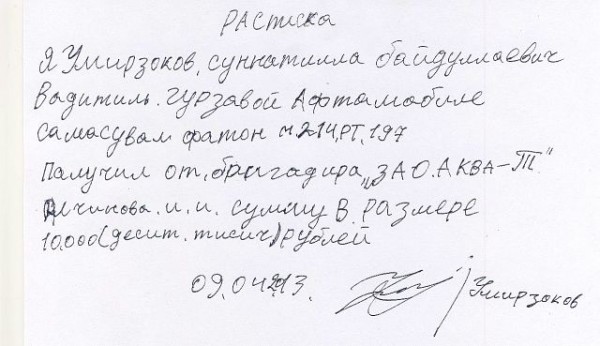 РАСписка
Я Умирзоков, суннатилла байдуллаевич
Вадитиль. гурзавой Афтамабиле
самасувал фатон м.214,РТ,197
Палучил от, бригадира „ЗАО.АКВА-Т."
и.и. сумму В. размере
10,000(десит. тисич) рублей
09.04213. Умирзоков